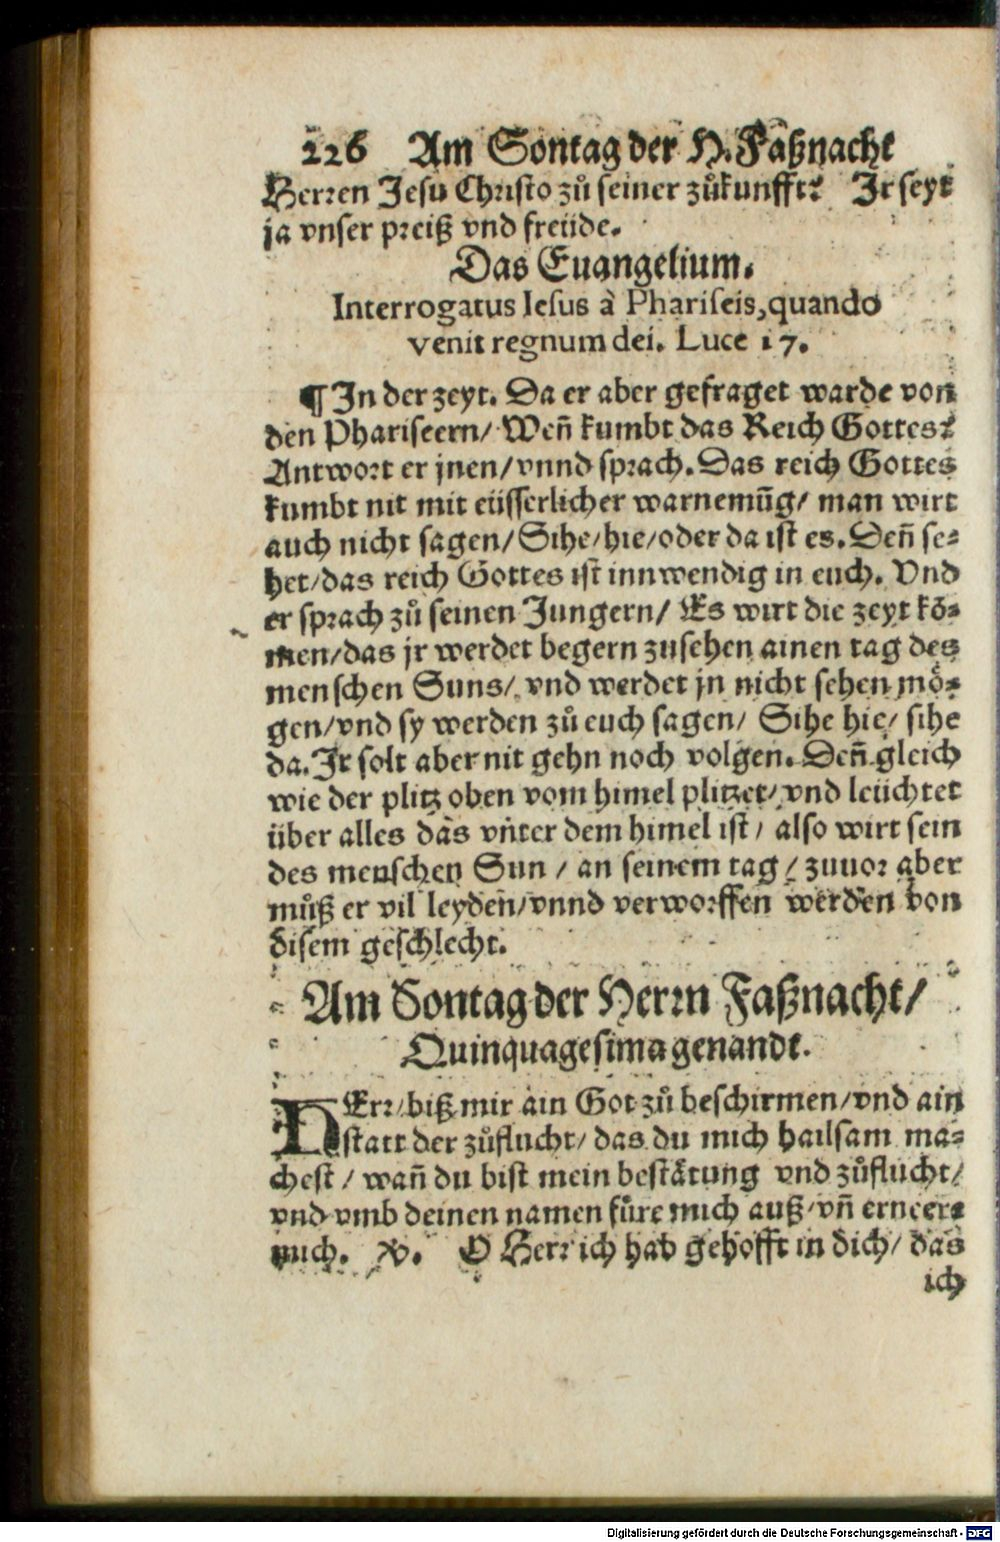 226 Am Sontag der H. Faßnacht
Herren Jesu Christo zů seiner zůkunfft? Ir seyt
ja vnser preiß vnd freüde.
Das Euangelium.
Interrogatus Iesus à Phariseis, quando
venit regnum dei. Luce 17.
¶ In der zeyt. Da er aber gefraget warde von
den Phariseern/ Weñ kumbt das Reich Gottes?
Antwort er jnen/ vnnd sprach. Das reich Gottes
kumbt nit mit eüsserlicher warnemũg/ man wirt
auch nicht sagen/ Sihe/ hie/ oder da ist es. Deñ se-
het/ das reich Gottes ist innwendig in euch. Vnd
er sprach zů seinen Jungern/ Es wirt die zeyt kõ-
men/ das jr werdet begern zusehen ainen tag des
menschen Suns/ vnd werdet jn nicht sehen mö-
gen/ vnd sy werden zů euch sagen/ Sihe hie/ sihe
da. Ir solt aber nit gehn noch volgen. Deñ gleich
wie der plitz oben vom himel plitzet/ vnd leüchtet
über alles das vnter dem himel ist/ also wirt sein
des menschen Sun/ an seinem tag/ zuuor aber
můß er vil leyden/ vnnd verworffen werden von
disem geschlecht.
Am Sontag der Herrn Faßnacht/
Quinquagesima genandt.
HErr/ biß mir ain Got zů beschirmen/ vnd ain
statt der zůflucht/ das du mich hailsam ma-
chest/ wañ du bist mein bestätung vnd zůflucht/
vnd vmb deinen namen füre mich auß/ vñ erneere
mich. V. O Herr ich hab gehofft in dich/ das
ich
Digitalisierung gefördert durch die Deutsche Forschungsgemeinschaft - DFG